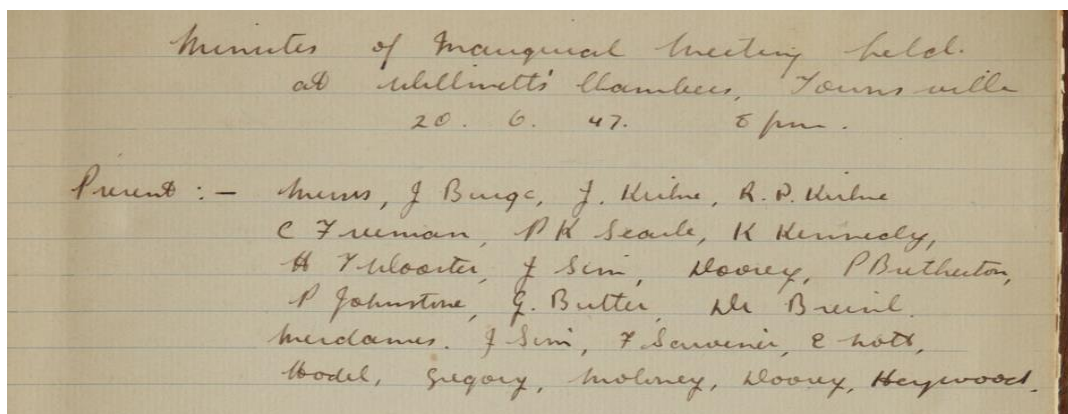 Minutes of Inaugural Meeting held.
at Willmett's Chambers, Townsville
20. 6. 47. 8 pm.
Present :- Messrs, J , J. , R. P.
C Freeman, P K Searle, K Kennedy,
H T Wooster, J Sim, Doorey, P Brotherton,
P Johnstone, G. Butler, Dr
Mesdames. J Sim, F Scrivener, E Nott,
Hodel, Gregory, Moloney, Doorey, Heywood.